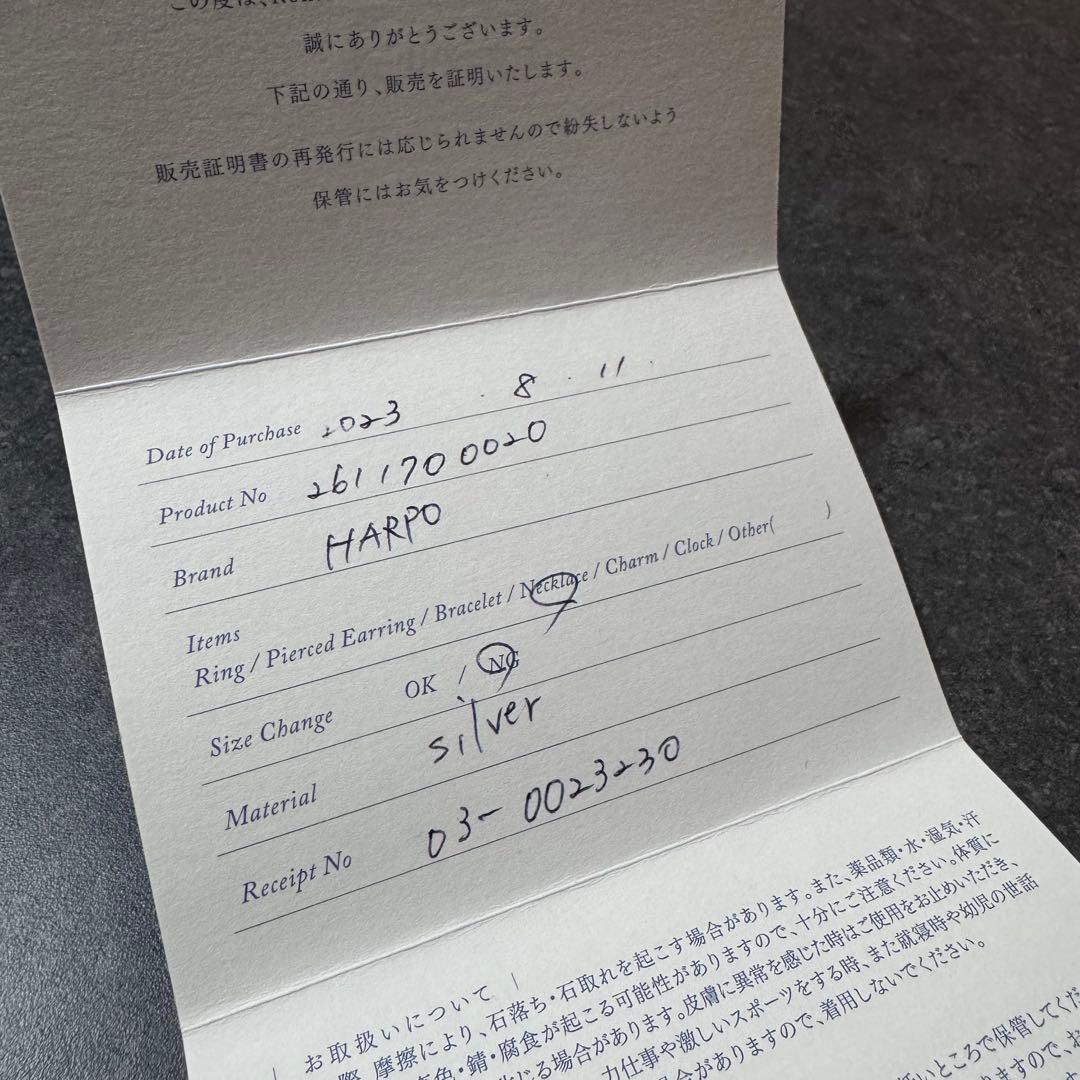 この度は、
誠にありがとうございます。
下記の通り、販売を証明いたします。
販売証明書の再発行には応じられませんので紛失しないよう
保管にはお気をつけください。
Date of Purchase 2023 . 8 . 11 .
Product No 2611700020
Brand HARPO
Items
Ring / Pierced Earring / Bracelet / Necklace / Charm / Clock / Other( )
Size Change OK / NG
Material silver
Receipt No 03-0023230
お取扱いについて
摩擦により、石落ち・石取れを起こす場合があります。また、薬品類・水・湿気・汗
変色・錆・腐食が起こる可能性がありますので、十分にご注意ください。体質に
場合があります。皮膚に異常を感じた時はご使用をお止めいただき、
力仕事や激しいスポーツをする時、また就寝時や幼児の世話
場合がありますので、着用しないでください。
ところで保管してくだ
ますので、お